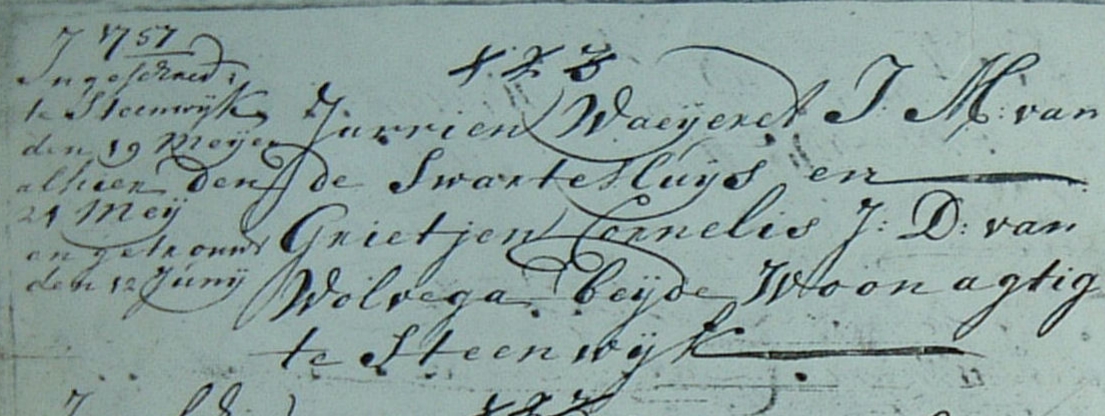 J 1757
Ingeschred:
te Steenwijk
den 19 Meij en
alhier den
21 Meij
en getrouwt
den 12 Junij
Jurrien Waeijeret J: M: van
de Swartesluijs en
Grietjen Cornelis J: D: van
Wolvega beijde Woonagtig
te Steenwijk